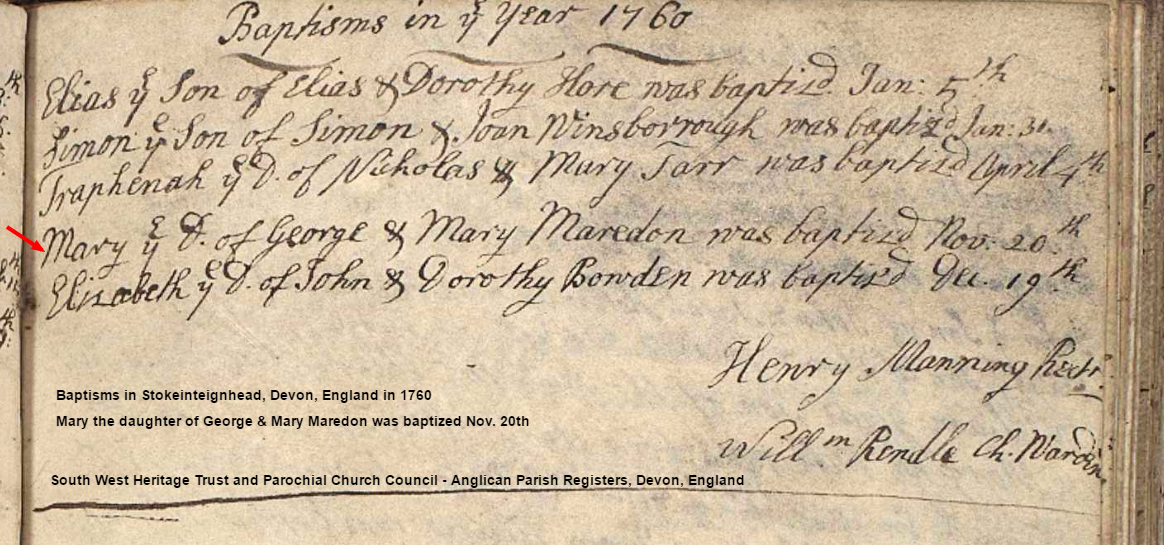 Baptisms in yͤ Year 1760
Elias yͤ Son of Elias & Dorothy Hore was baptizd Jan: 5th
Simon yͤ Son of Simon & Joan Winsborrough was baptizd Jan: 31.
Traphenah yͤ D. of Nicholas & Mary Tarr was baptizd April 4th
Mary yͤ D. of George & Mary Maredon was baptizd Nov. 20th
Elizabeth yͤ D. of John & Dorothy Bowden was baptizd Dec. 19th
Henry Manning Rectr.
Baptisms in Stokeinteignhead, Devon, England in 1760
Mary the daughter of George & Mary Maredon was baptized Nov. 20th
Willm Rendle Ch. Warden
South West Heritage Trust and Parochial Church Council - Anglican Parish Registers, Devon, England